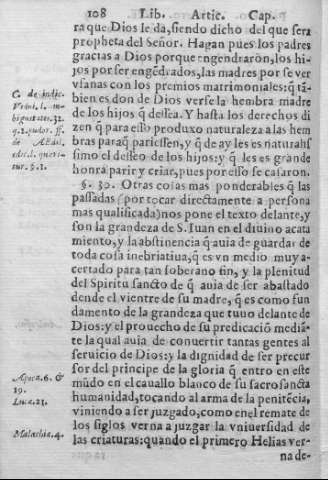 108 Lib. Artic. Cap.
ra que Dios le da, siendo dicho del que sera
propheta del Señor. Hagan pues los padres
gracias a Dios porque engendrarõn, los hi-
jos por ser engẽdrados, las madres por se ver
vfanas con los premios matrimoniales: q̃ tã-
bien es don de Dios verse la hembra madre
de los hijos q̃ dessea. Y hasta los derechos di
zen q̃ para esso produxo naturaleza a las hem
bras paraq̃ pariessen, y q̃ de ay les es naturalis
simo el desseo de los hijos: y q̃ les es grande
honra parir y criar, pues por esso se casaron.
§. 30. Otras cosas mas ponderables q̃ las
passadas (por tocar directamente a persona
mas qualificada) nos pone el texto delante, y
son la grandeza de S. Iuan en el diuino acata
miento, y la abstinencia q̃ auia de guardar de
toda cosa inebriatiua, q̃ es vn medio muy a-
certado para tan soberano fin, y la plenitud
del Spiritu sancto de q̃ auia de ser abastado
dende el vientre de su madre, q̃ es como fun
damento de la grandeza que tuuo delante de
Dios: y el prouecho de su predicaciõ mediã-
te la qual auia de conuertir tantas gentes al
seruicio de Dios: y la dignidad de ser precur
sor del principe de la gloria q̃ entro en este
mũdo en el cauallo blanco de su sacrosancta
humanidad, tocando al arma de la penitẽcia,
viniendo a ser juzgado, como en el remate de
los siglos verna a juzgar la vniuersidad de
las criaturas: quando el primero Helias ver-
na de-
C. de indic.
l.
32.
q. 2. pudor. ff.
de
§. 1.
Apoca. 6. &
19.
Luca. 21.
Malachia. 4.